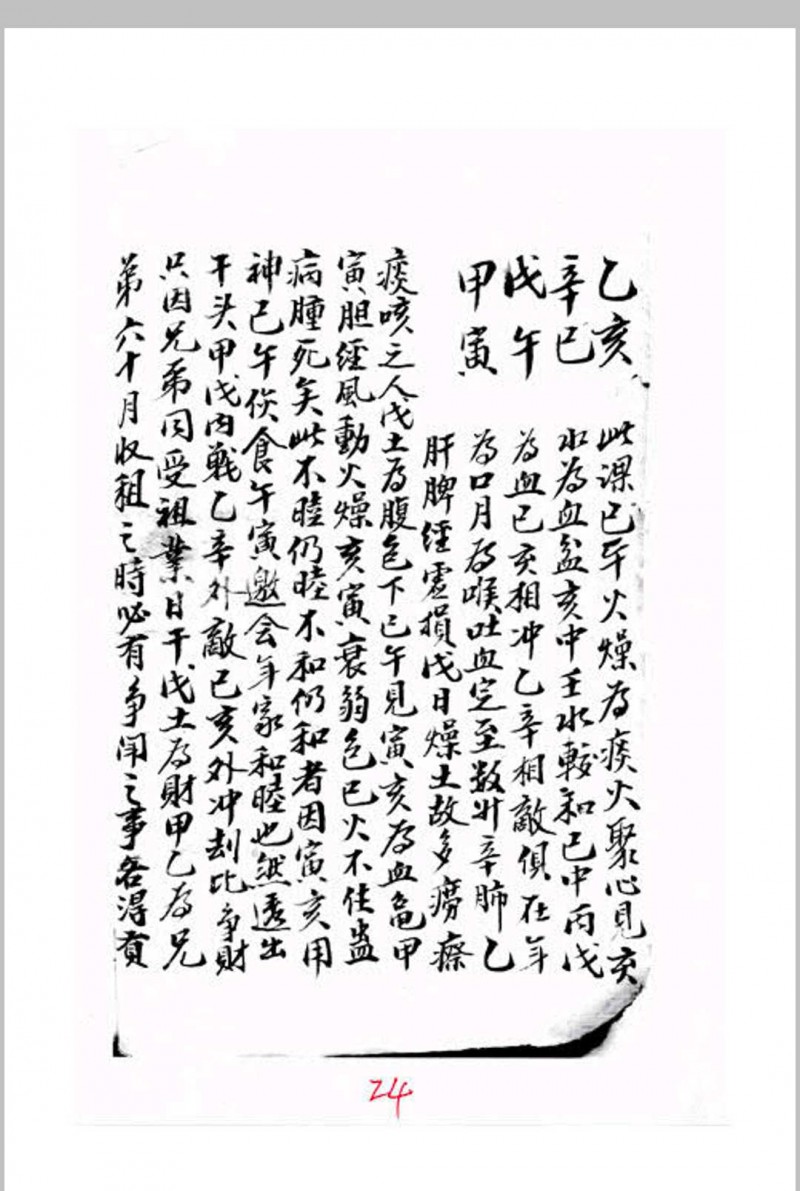 乙亥 此课巳午火燥为痰火聚心見亥
辛巳 水為血盆亥中壬水較和巳中丙戊
戊午 為血巳亥相冲乙辛相敵俱在年
甲寅 為口月為喉吐血定至数升辛肺乙
肝脾經虛損戊日燥土故多癆瘵
痰咳之人戊土為腹包下巳午見寅亥為血亀甲
寅胆經風動火燥亥寅衰弱包巳火不住蛊
病腫死矣此不睦仍睦不和仍和者因寅亥用
神巳午伙食午寅邀会年家和睦也然透出
干头甲戊内戰乙辛外敵巳亥外冲刦比争財
只因兄弟同受祖業日干戊土為財甲乙為兄
弟六十月收租之時必有争闹之事各得有
24